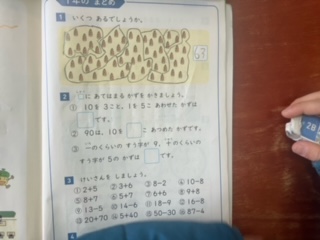 1年の まとめ
1 いくつ あるでしょうか。
2 □に あてはまる かずを かきましょう。
① 10を 3こと、1を 5こ あわせた かずは
□です。
② 90は、10を □こ あつめた かずです。
③ 一のくらいの すう字が 9、十のくらいの
すう字が 5の かずは □です。
3 けいさんを しましょう。
① 2+5 ② 3+6 ③ 8-2 ④ 10-8
⑤ 8+7 ⑥ 5+7 ⑦ 6+6 ⑧ 9+8
⑨ 13-5 ⑩ 14-6 ⑪ 18-9 ⑫ 16-8
⑬ 20+70 ⑭ 5+40 ⑮ 50-30 ⑯ 87-4
4